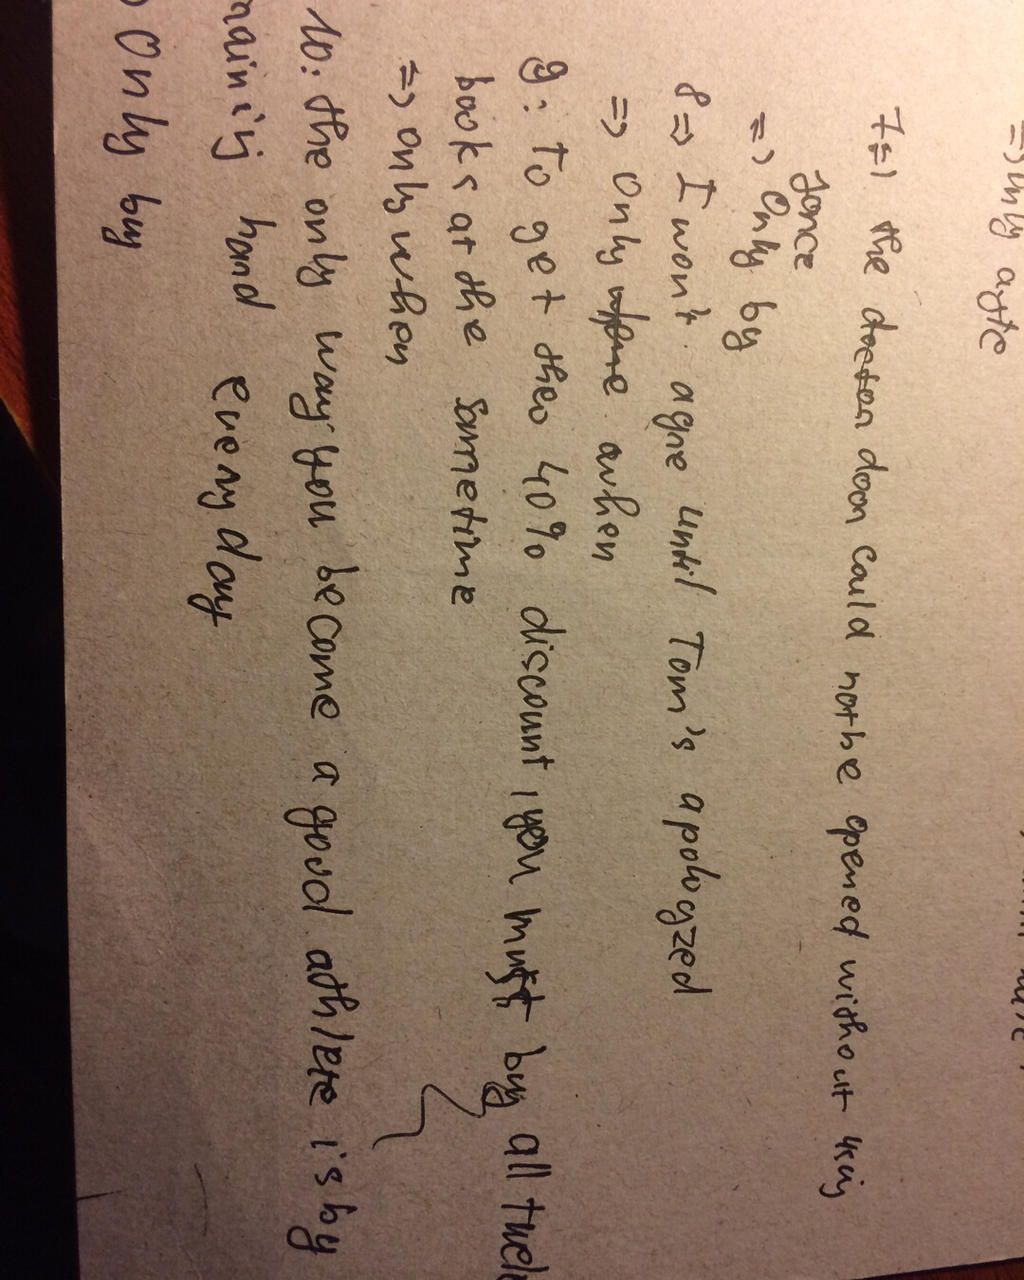 => only afte
7=> the doctor door could not be opened without using
force
=> Only by
8=> I won't agre until Tom's apologyzed
=> Only when
9: To get theo 40% discount, you must buy all
books at the sametime
=> only when
10: the only way you become a good athlete is by
raining hard every day
Only by